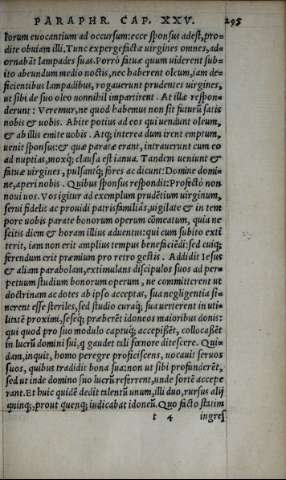 PARAPHR. CAP. XXV. 295
lorum euocantium ad occursum: ecce sponsus adest, pro-
dite obuiam illi. Tunc expergefactæ uirgines omnes, ad-
ornabāt lampades suas. Porrò fatuæ quum uiderent subi-
to abeundum medio noctis, nec haberent oleum, iam de-
ficientibus lampadibus, rogauerunt prudentes uirgines,
ut sibi de suo oleo nonnihil impartirent. At illæ respon-
derunt: Veremur, ne quod habemus non sit futurū satis
nobis & uobis. Abite potius ad eos qui uendunt oleum,
& ab illis emite uobis. Atq; interea dum irent emptum,
uenit sponsus: & quæ paratæ erant, intrauerunt cum eo
ad nuptias, moxq; clausa est ianua. Tandem ueniunt &
fatuæ uirgines, pulsantq; fores ac dicunt: Domine domi-
ne, aperi nobis. Quibus sponsus respondit: Profectò non
noui uos. Vos igitur ad exemplum prudētium uirginum,
serui fidelis ac prouidi patrisfamiliâs, uigilate & in tem
pore uobis parate bonorum operum cōmeatum, quia ne
scitis diem & horam illius aduentus: qui cum subito exti
terit, iam non erit amplius tempus beneficiēdi: sed cuiq;
ferendum erit præmium pro retro gestis. Addidit Iesus
& aliam parabolam, extimulans discipulos suos ad per-
petuum studium bonorum operum, ne committerent ut
doctrinam ac dotes ab ipso acceptas, sua negligentia si-
nerent esse steriles, sed studio curaq; sua uerterent in uti-
litatē proximi, seseq; præberēt idoneos maioribus donis:
qui quod pro suo modulo captuq; accepissēt, collocassēt
in lucrū domini sui, q gaudet tali fœnore ditescere. Qui-
dam, inquit, homo peregre proficiscens, uocauit seruos
suos, quibus tradidit bona sua: non ut sibi profunderēt,
sed ut inde domino suo lucrū referrent, unde sortē accepe
rant. Et huic quidē dedit talentū unum, illi duo, rursus alij
quinq;, prout quenq; iudicabat idoneū. Quo facto statim
t 4 ingres